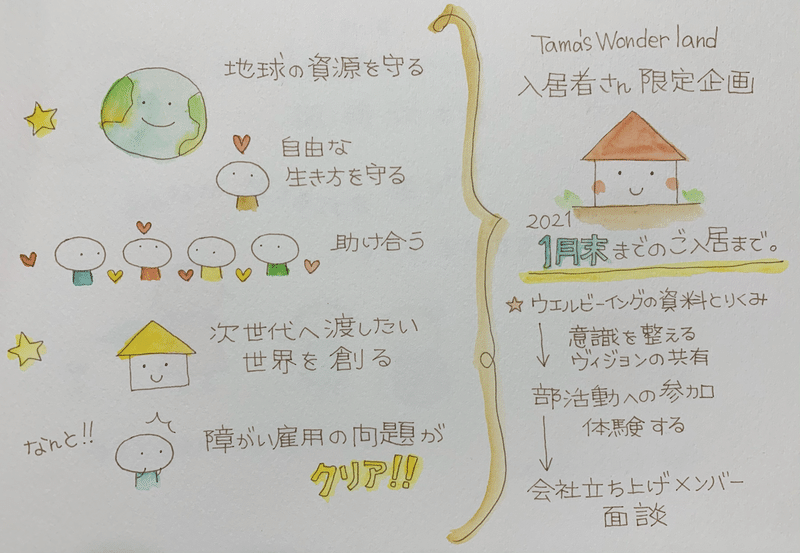 地球の資源を守る
自由な
生き方を守る
助け合う
次世代へ渡したい
世界を創る
なんと!!
障がい雇用の問題が
クリア!!
Tama's Wonder land
入居者さん限定企画
2021
1月末までのご入居まで。
☆ウエルビーイングの資料とりくみ
意識を整える
ヴィジョンの共有
部活動への参加
体験する
会社立ち上げメンバー
面談